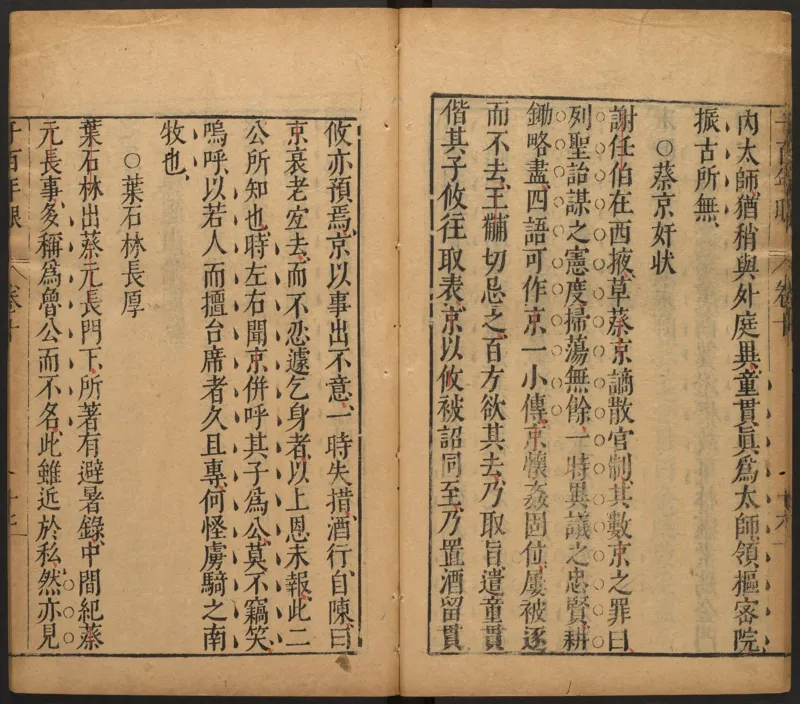 內太師猶稍與外庭異童貫眞爲太師領樞密院
振古所無
○蔡京奸狀
謝任伯在西掖草蔡京謫散官制其數京之罪曰
列聖詒謀之憲度掃蕩無餘一時異議之忠賢耕
鋤略盡四語可作京一小傳京懷姦固位屢被逐
而不去王黼切忌之百方欲其去乃取旨遣童貫
偕其子攸往取表京以攸被詔同至乃置酒留貫
攸亦預焉京以事出不意一時失措酒行自陳曰
京衰老宜去而不忍遽乞身者以上恩未報此二
公所知也時左右聞京併呼其子爲公莫不竊笑
嗚呼以若人而擅台席者久且專何怪虜騎之南
牧也
○葉石林長厚
葉石林出蔡元長門下所著有避暑錄中間紀蔡
元長事多稱爲魯公而不名此雖近於私然亦見
千百年眼 卷十